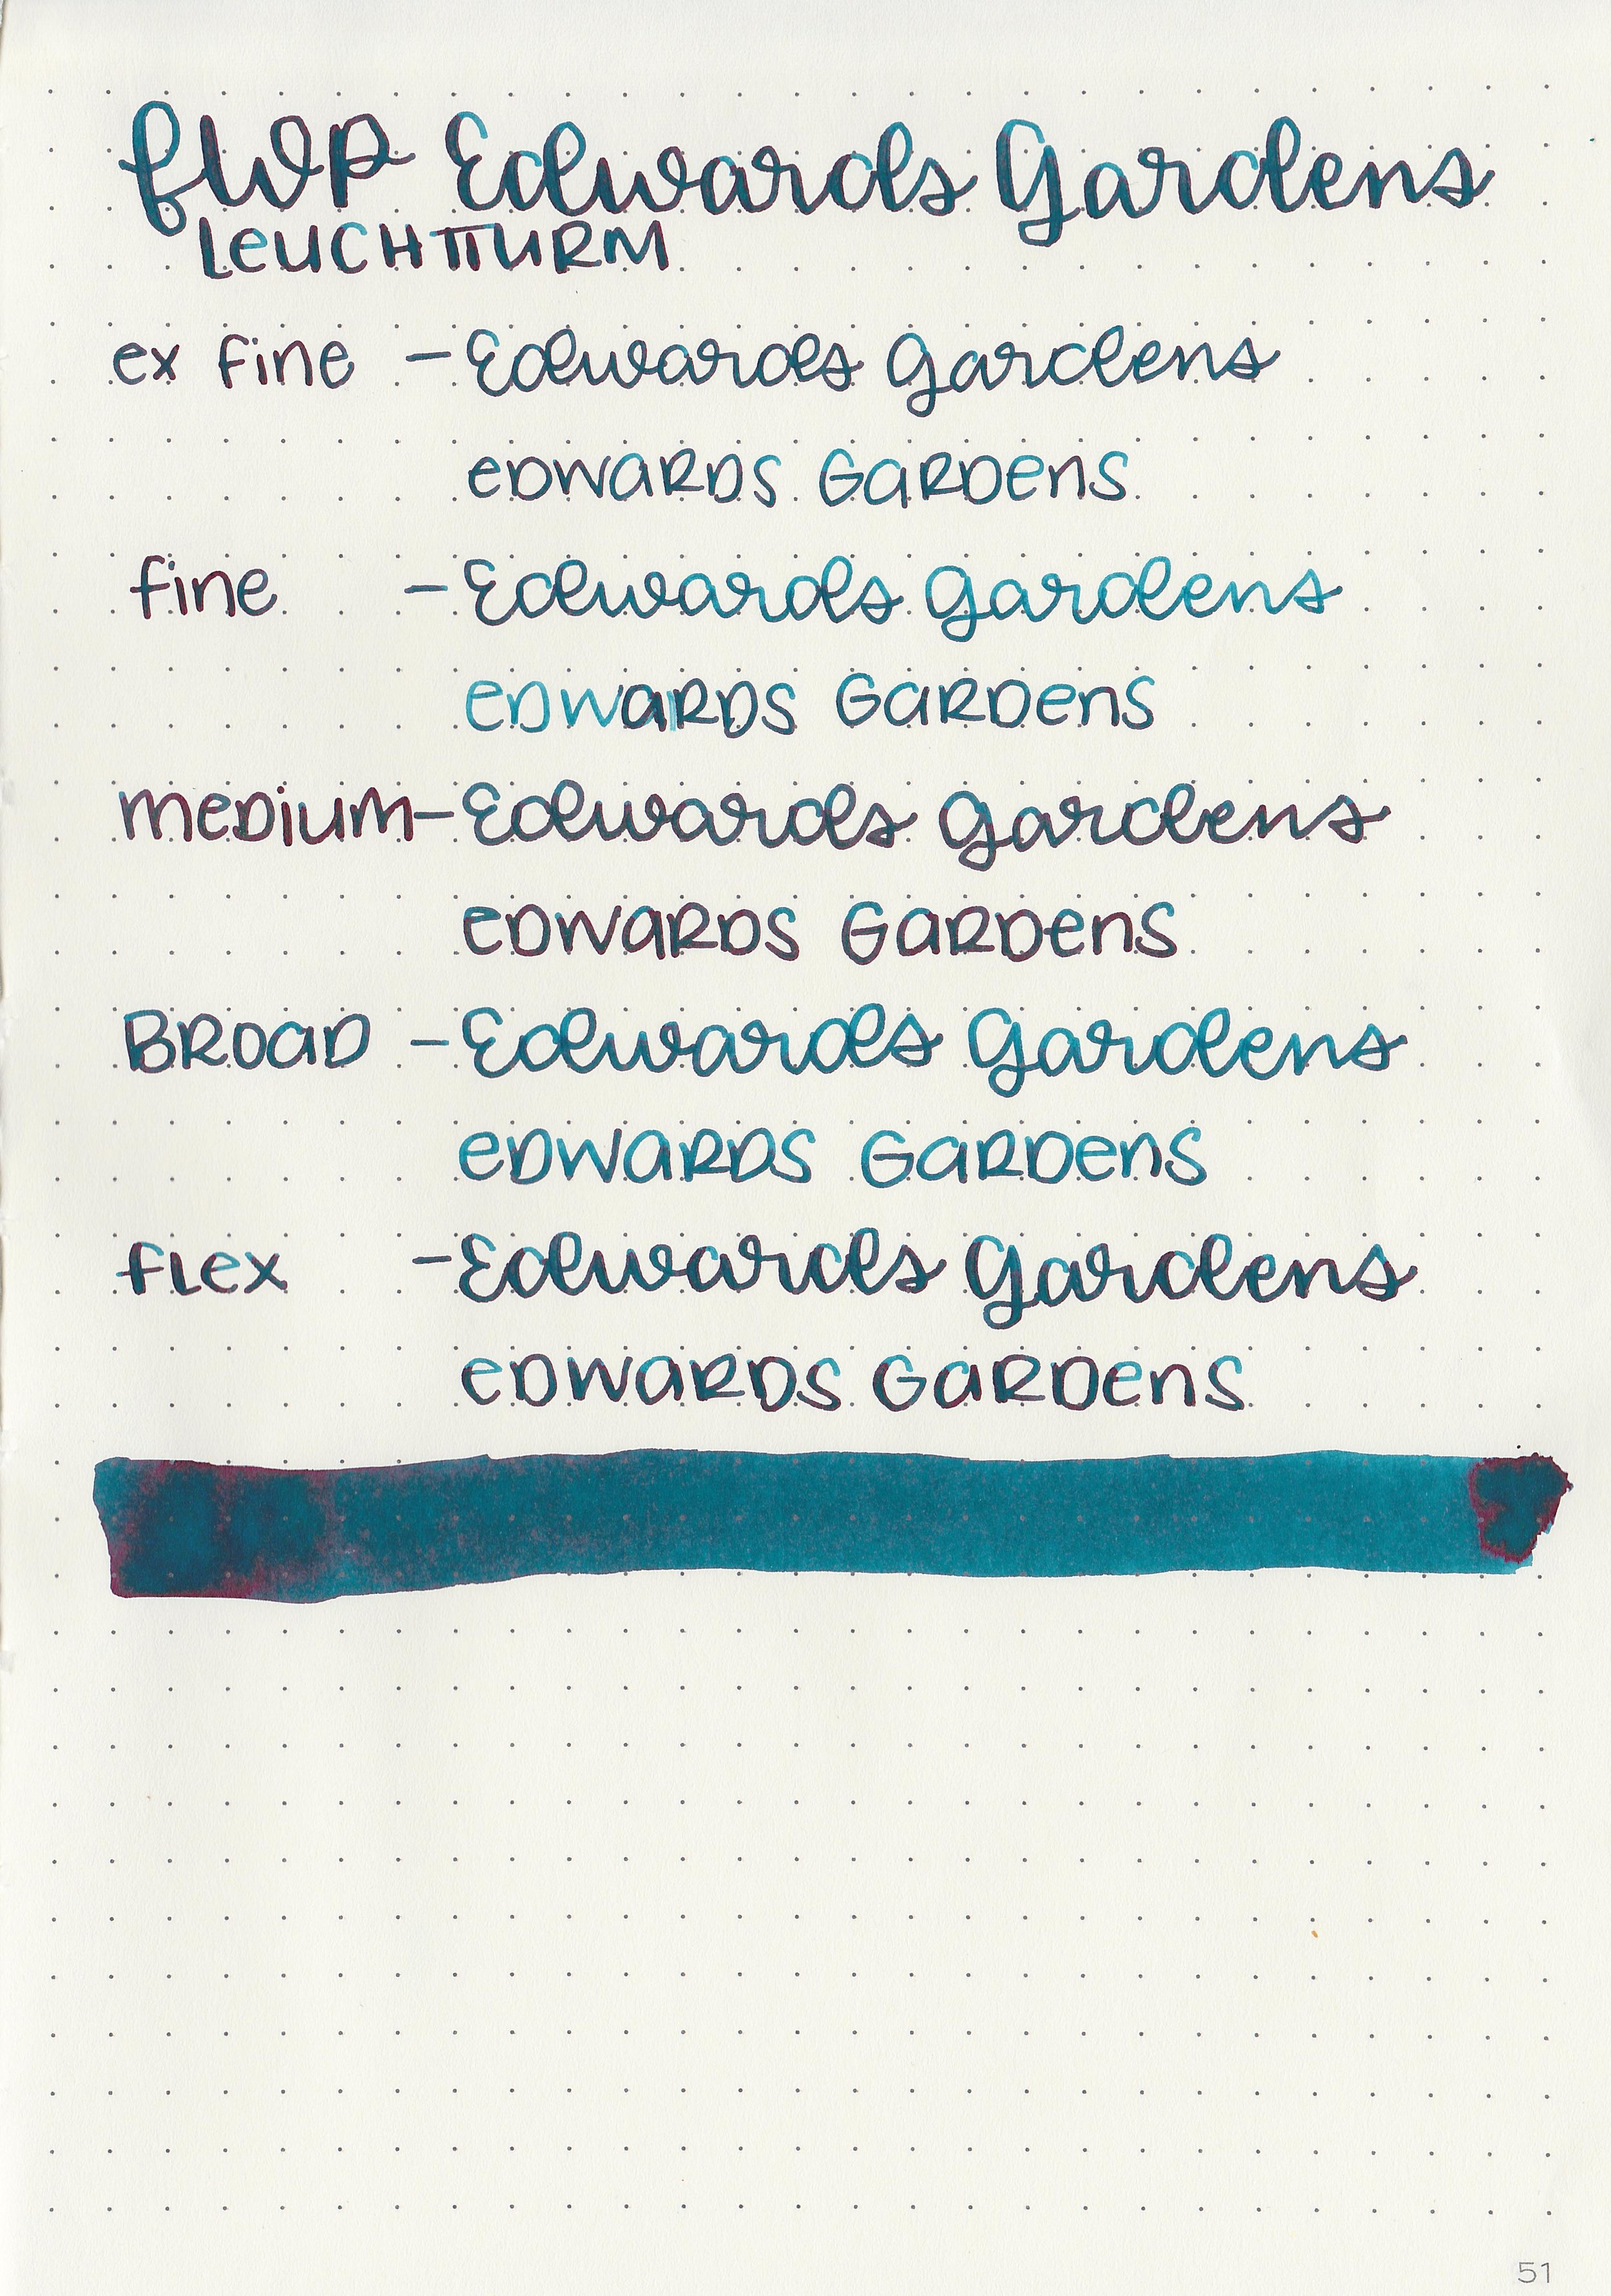 FWP Edwards Gardens
LEUCHTTURM
ex fine - Edwards Gardens
EDWARDS GARDENS
fine - Edwards Gardens
EDWARDS GARDENS
MEDIUM - Edwards Gardens
EDWARDS GARDENS
BROAD - Edwards Gardens
EDWARDS GARDENS
FLEX - Edwards Gardens
EDWARDS GARDENS
51